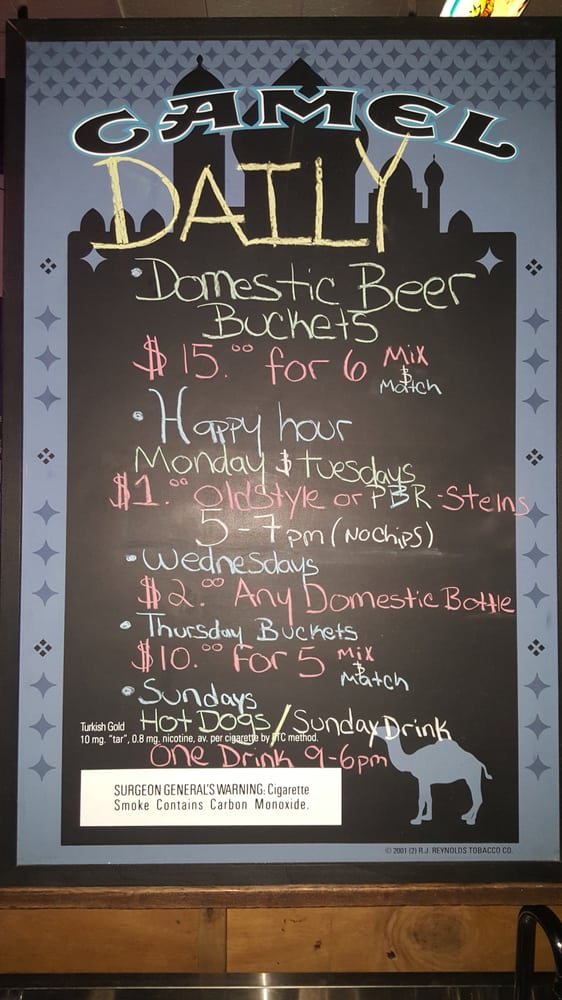 CAMEL
DAILY
• Domestic Beer
Buckets
$15.00 for 6 Mix
$
Match
• Happy hour
Monday $ tuesdays
$1.00 oldstyle or PBR - Steins
5-7pm (No chips)
• Wednesdays
$2.00 Any Domestic Bottle
• Thursday Buckets
$10.00 for 5 Mix
$
Match
• Sundays
Hot Dogs / Sunday Drink
One Drink 9-6pm
Turkish Gold
10 mg. "tar", 0.8 mg. nicotine, av. per cigarette by FTC method.
SURGEON GENERAL'S WARNING: Cigarette
Smoke Contains Carbon Monoxide.
© 2001 (2) R.J. REYNOLDS TOBACCO CO.